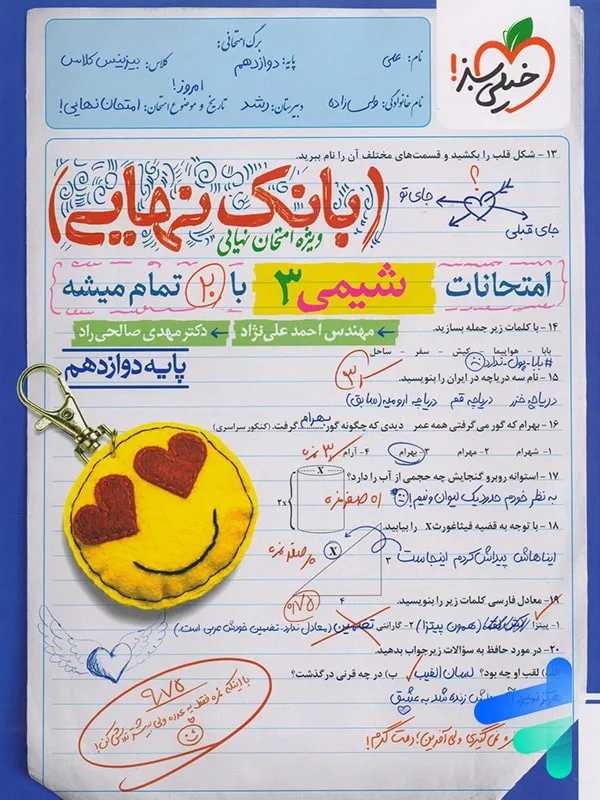 برگ امتحانی:
نام: علی
پایه: دوازدهم
کلاس: بیزینس کلاس
نام خانوادگی: ولی زاده
دبیرستان: رشد
تاریخ و موضوع امتحان: امروز! امتحان نهایی!
خیلی سبز!
۱۳ - شکل قلب را بکشید و قسمت‌های مختلف آن را نام ببرید.
?
جای تو
جای قبلی
(بانک نهایی)
ویژه امتحان نهایی
امتحانات شیمی ۳ با ۲۰ تمام میشه
مهندس احمد علی‌نژاد
دکتر مهدی صالحی‌راد
پایه دوازدهم
۱۴ - با کلمات زیر جمله بسازید.
بابا - هواپیما - کیش - سفر - ساحل
#بابا-پول-ندارد
۱۵ - نام سه دریاچه در ایران را بنویسید.
دریاچه خزر دریاچه قم دریاچه ارومیه (سابق)
۱۶ - بهرام که گور می گرفتی همه عمر دیدی که چگونه گور بهرام گرفت. (کنکور سراسری)
۱- شهرام ۲- مهرام ۳- بهرام ۴- آرام
۱۷ - استوانه روبرو گنجایش چه حجمی از آب را دارد؟
به نظر خودم حدود یک لیوان و نیم!
X
2X
۱۸ - با توجه به قضیه فیثاغورث X را بیابید.
ایناهاش پیداش کردم اینجاست
X
۳
۴
۱۹ - معادل فارسی کلمات زیر را بنویسید.
۱- پیتزا (همون پیتزا) ۲- گارانتی تضمین (معادل ندارد. تضمین خودش عربی است.)
۲۰ - در مورد حافظ به سؤالات زیر جواب بدهید.
الف) لقب او چه بود؟ لسان الغیب ب) در چه قرنی در گذشت؟
زنده شد به عشق
نمره نمی‌گیری ولی آفرین! دمت گرم!
۹/۷۵
با اینکه نمره فقط یه عدده ولی بیشتر تلاش کن!